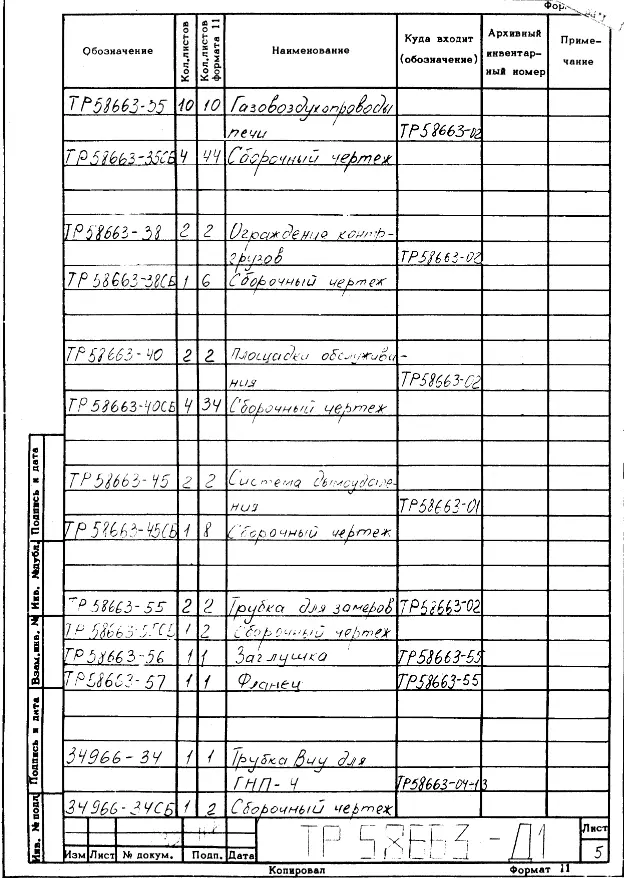 Обозначение Кол.листов Кол.листов формата 11 Наименование Куда входит (обозначение) Архивный инвентарный номер Примечание
ТР58663-35 10 10 Газовоздухопроводы
печи ТР58663-02
ТР58663-35СБ 4 44 Сборочный чертеж
ТР58663-38 2 2 Ограждения контр-
грузов ТР58663-02
ТР58663-38СБ 1 6 Сборочный чертеж
ТР58663-40 2 2 Площадки обслужива-
ния ТР58663-02
ТР58663-40СБ 4 34 Сборочный чертеж
ТР58663-45 2 2 Система дымоудале-
ния ТР58663-01
ТР58663-45СБ 1 8 Сборочный чертеж
ТР58663-55 2 2 Трубка для замеров ТР58663-02
ТР58663-55СБ 1 2 Сборочный чертеж
ТР58663-56 1 1 Заглушка ТР58663-55
ТР58663-57 1 1 Фланец ТР58663-55
34966-34 1 1 Трубка для
ГНП-4 ТР58663-04-13
34966-34СБ 1 2 Сборочный чертеж
Инв. № подл. Подпись и дата Взам.инв. № Инв. №дубл. Подпись и дата
ТР58663-Д1
Лист
5
Изм Лист № докум. Подп. Дата
Копировал Формат 11